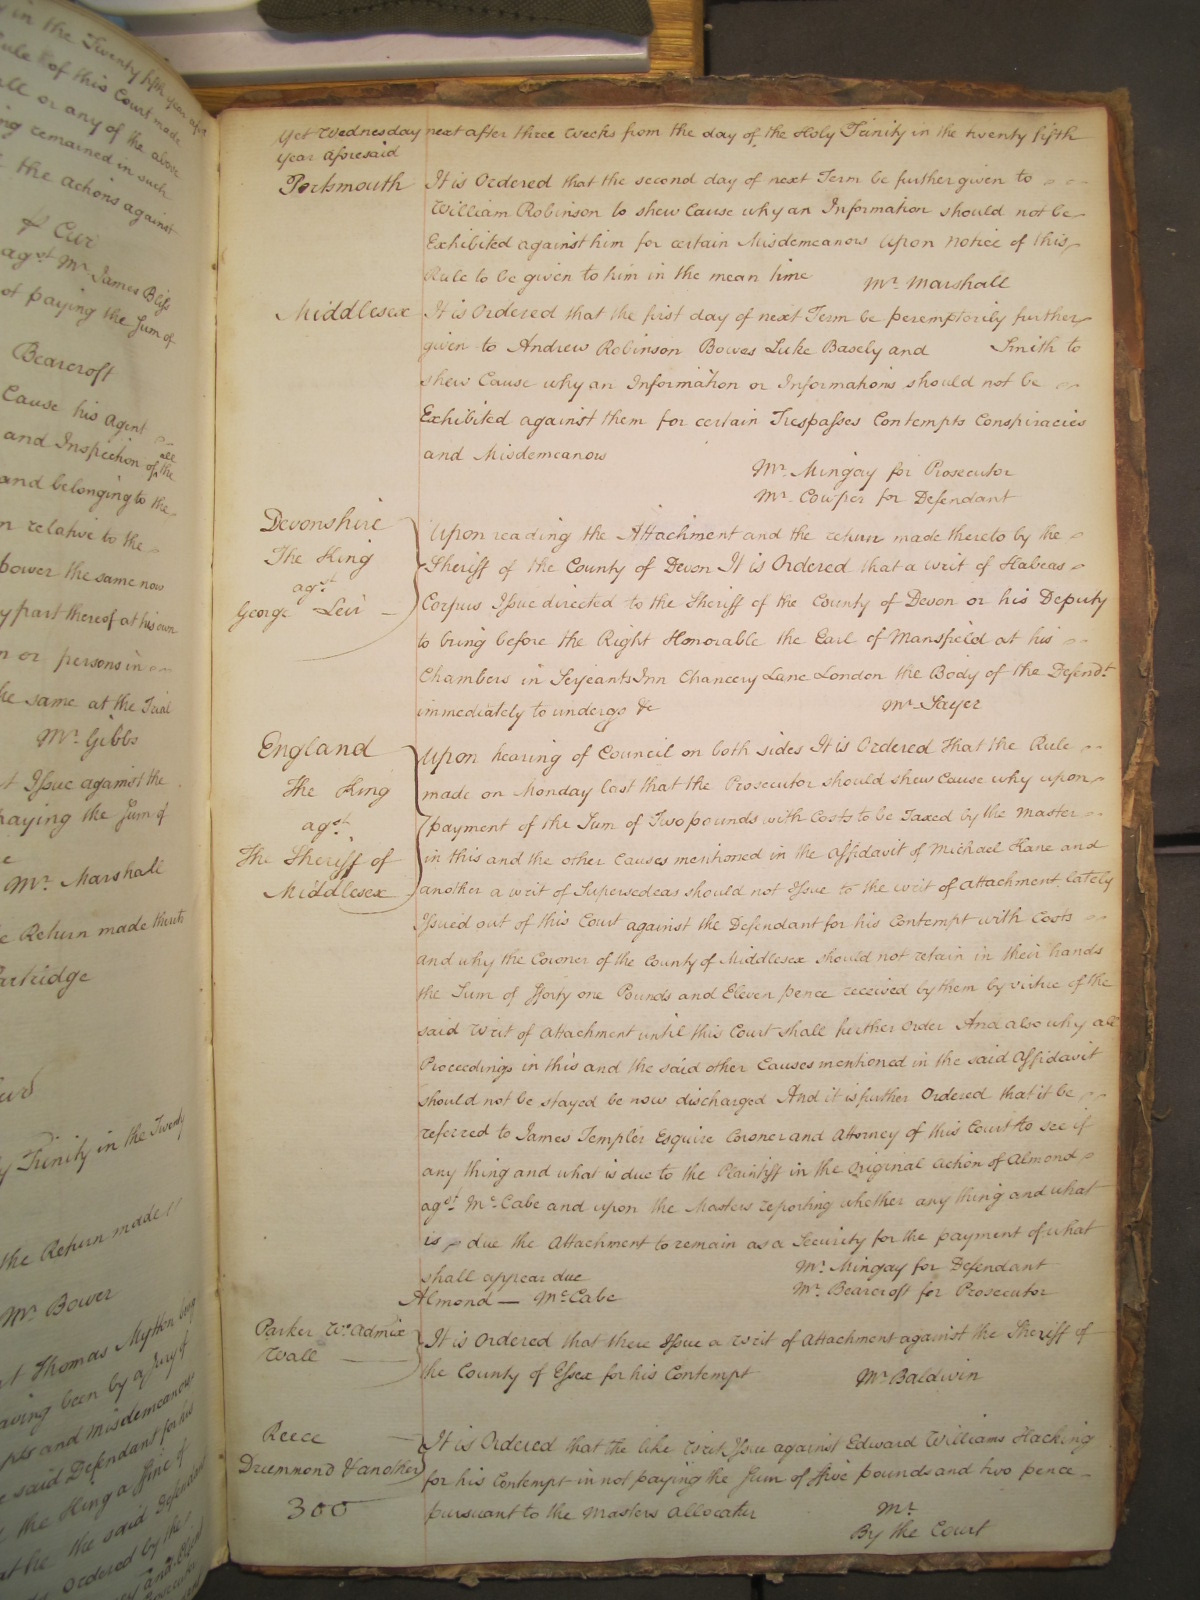 in the Twenty fifth year afor
Rule of this Court made
all or any of the above
ing remained in such
the actions against
& Cur
agst Mr. James Bliss
ot paying the Sum of
Bearcroft
Cause his agent
and Inspection of all the
and belonging to the
n relative to the
power the same now
y part thereof at his own
n or persons in
he same at the Trial
Mr. Gibbs
t Issue against the
paying the Sum of
Mr. Marshall
e Return made thereto
artridge
y Trinity in the Twenty
the Return made
Mr. Bower
Thomas Mytton being
aving been by a Jury of
and Misdemeanors
e said Defendant for his
the King a fine of
the said Defendant
Ordered by the
Yet Wednesday next after three weeks from the day of the Holy Trinity in the twenty fifth
year aforesaid
Portsmouth It is Ordered that the second day of next Term be further given to
William Robinson to shew Cause why an Information should not be
Exhibited against him for certain Misdemeanors upon notice of this
Rule to be given to him in the mean time Mr. Marshall
Middlesex It is Ordered that the first day of next Term be peremptorily further
given to Andrew Robinson Bowes Luke Basely and Smith to
shew Cause why an Information or Informations should not be
Exhibited against them for certain Trespasses Contempts Conspiracies
and Misdemeanors
Mr. Mingay for Prosecutor
Mr. Cowper for Defendant
Devonshire
The King
agst.
George Levi
Upon reading the Attachment and the return made thereto by the
Sheriff of the County of Devon It is Ordered that a writ of Habeas
Corpus Issue directed to the Sheriff of the County of Devon or his Deputy
to bring before the Right Honorable the Earl of Mansfield at his
Chambers in Serjeants Inn Chancery Lane London the Body of the Defendt.
immediately to undergo &c Mr. Sayer
England
The King
agst.
The Sheriff of
Middlesex
Upon hearing of Council on both sides It is Ordered That the Rule
made on Monday last that the Prosecutor should shew Cause why upon
payment of the Sum of Two pounds with Costs to be Taxed by the Master
in this and the other Causes mentioned in the affidavit of Michael Kane and
another a writ of Supersedeas should not Issue to the writ of attachment lately
Issued out of this Court against the Defendant for his Contempt with Costs
and why the Coroner of the County of Middlesex should not retain in their hands
the Sum of fforty one Pounds and Eleven pence received by them by virtue of the
said Writ of Attachment until this Court shall further Order And also why all
Proceedings in this and the said other Causes mentioned in the said Affidavit
should not be stayed be now discharged And it is further Ordered that it be
referred to James Templer Esquire Coroner and Attorney of this Court to see if
any thing and what is due to the Plaintiff in the Original Action of Almond
agst. Mc.Cabe and upon the Masters reporting whether any thing and what
is due the Attachment to remain as a Security for the payment of what
shall appear due Mr. Mingay for Defendant
Almond — McCabe Mr. Bearcroft for Prosecutor
Parker Wo. Admix
Wall
It is Ordered that there Issue a writ of Attachment against the Sheriff of
the County of Essex for his Contempt Mr. Baldwin
Reece
Drummond & another
300
It is Ordered that the like writ Issue against Edward Williams Hacking
for his Contempt in not paying the Sum of ffive pounds and two pence
pursuant to the Masters allocatur Mr.
By the Court